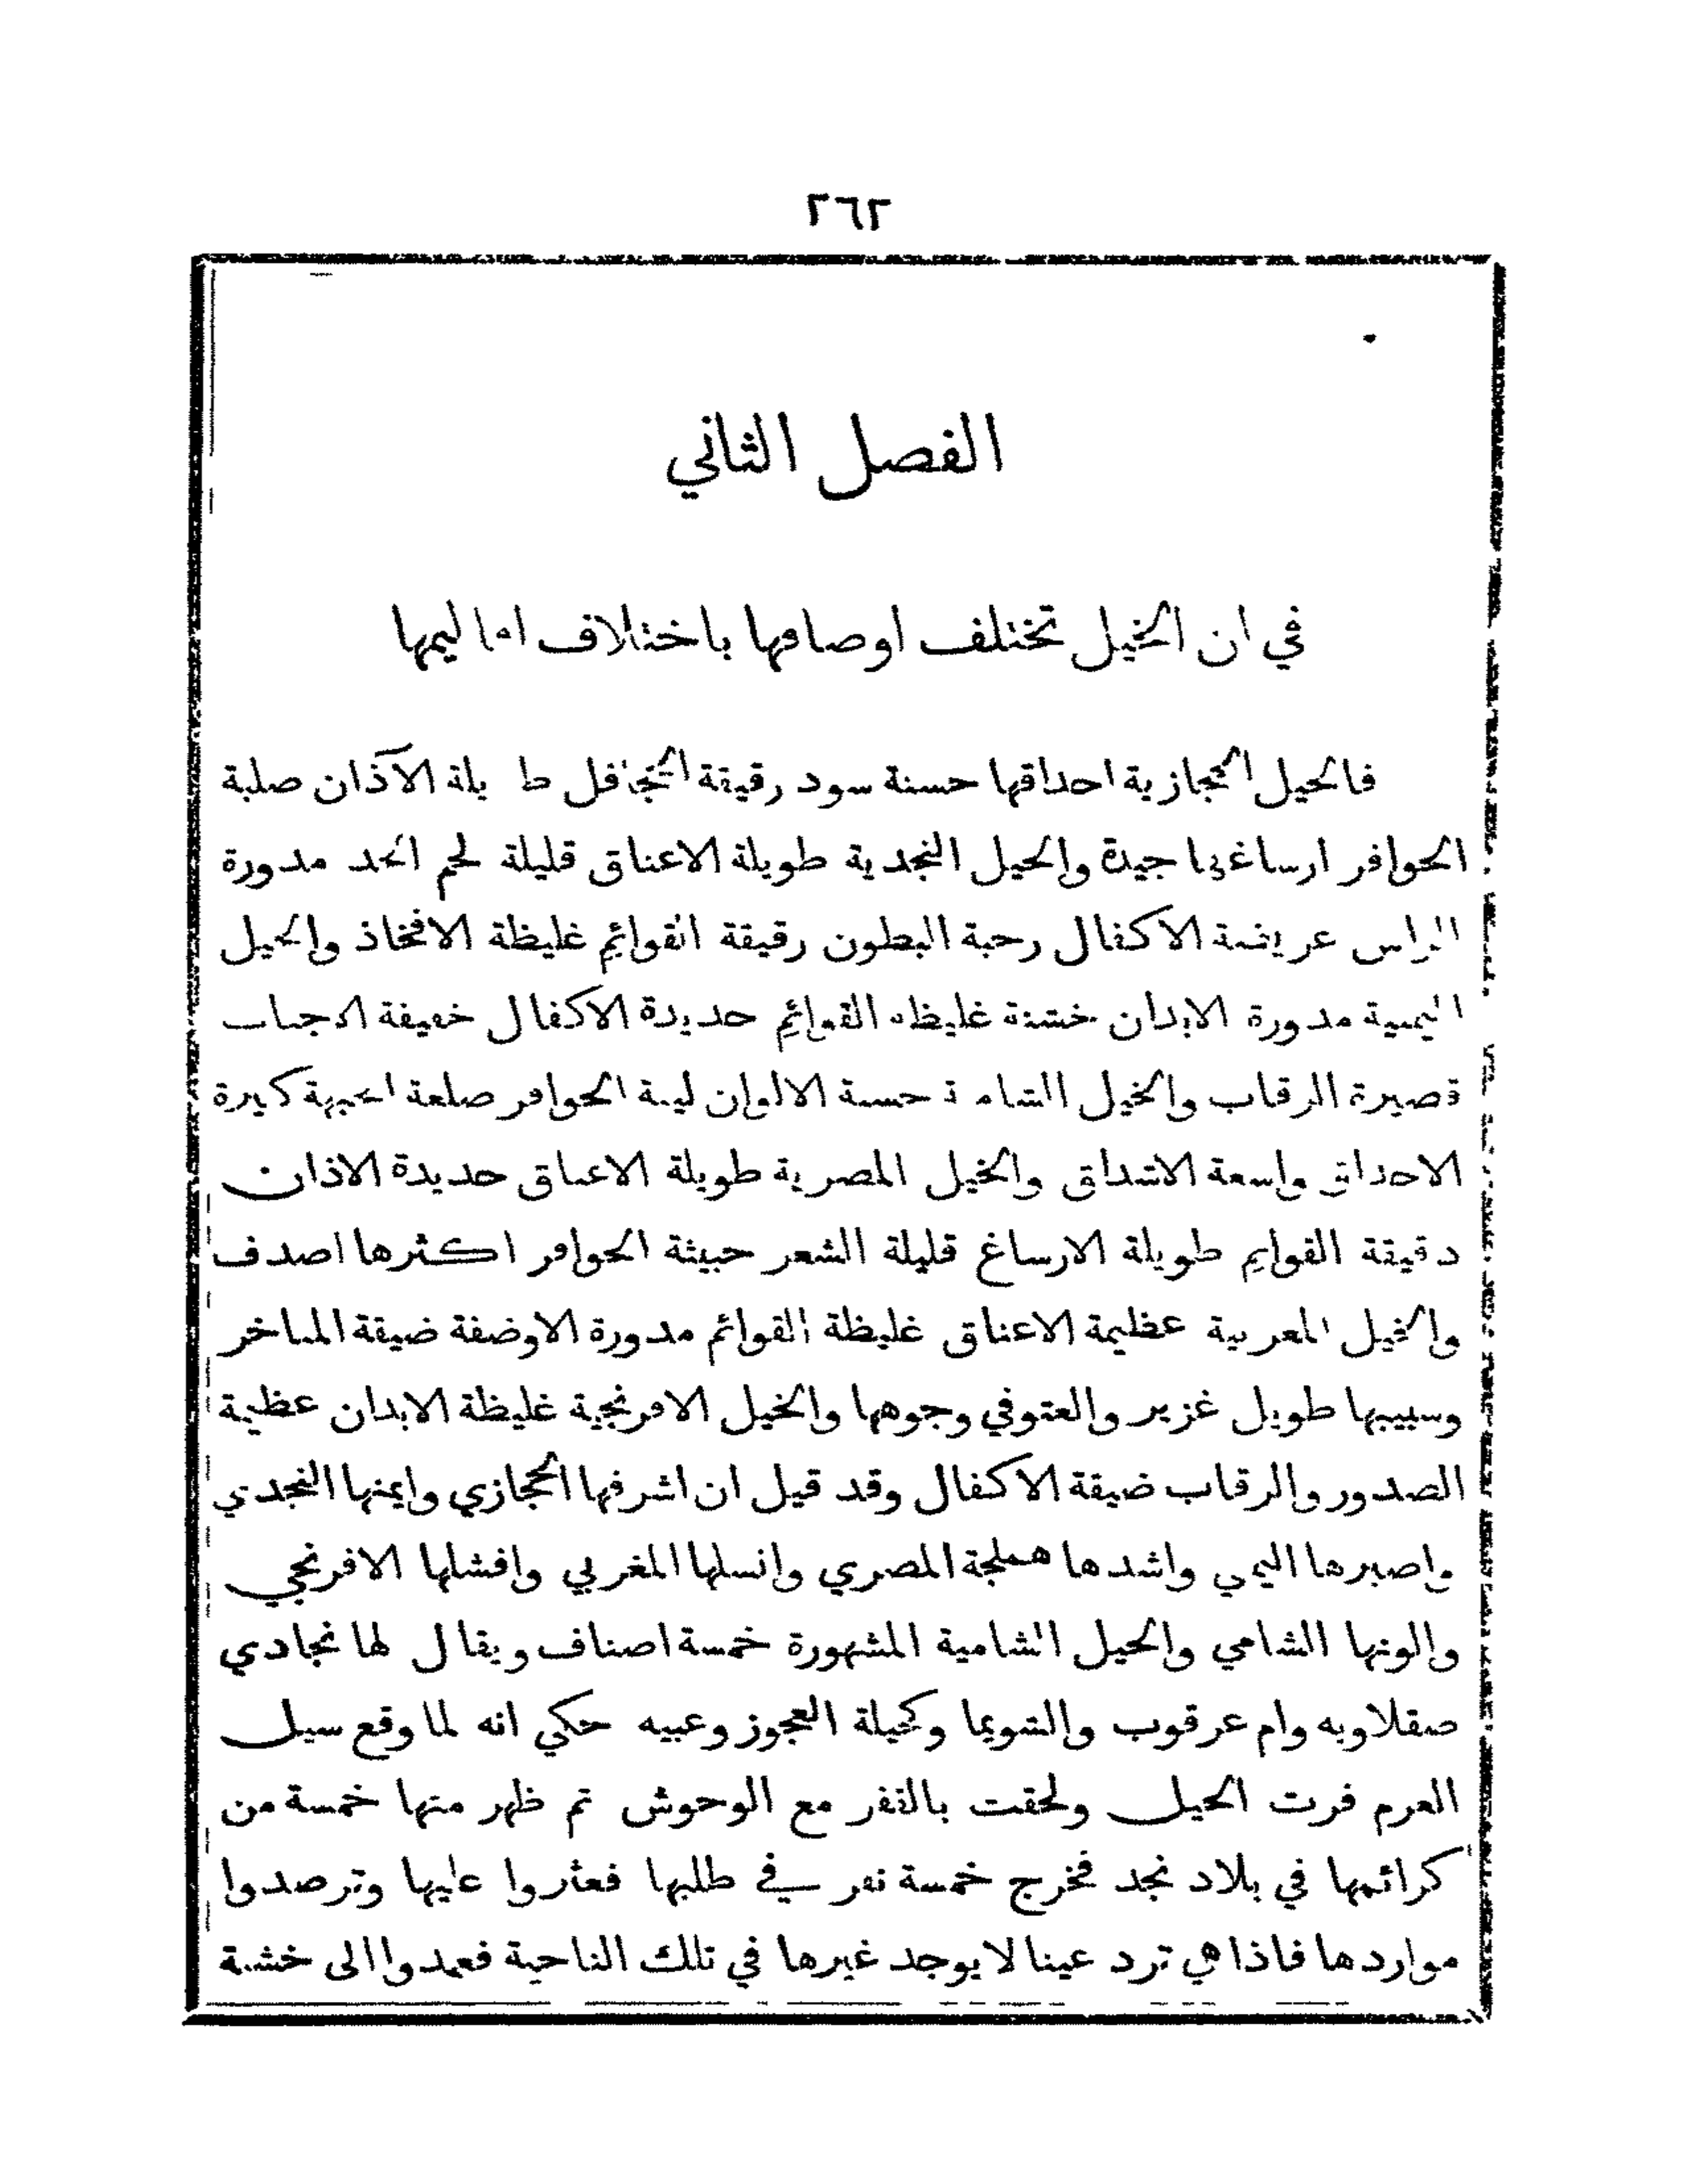 ٢٦٢
الفصل الثاني
في ان الخيل تختلف اوصافها باختلاف اقاليمها
فالخيل الحجازية احداقها حسنة سود رقيقة الجحافل طويلة الآذان صلبة
الحوافر ارساغها جيدة والخيل النجدية طويلة الاعناق قليلة لحم الخد مدورة
الراس عريضة الاكفال رحبة البطون رقيقة القوائم غليظة الافخاذ والخيل
اليمنية مدورة الابدان خشنة غليظة القوائم حديدة الاكفال خفيفة الاجناب
قصيرة الرقاب والخيل الشامية حسنة الالوان لينة الحوافر صلعة الجبهة كبيرة
الاحداق واسعة الاشداق والخيل المصرية طويلة الاعناق حديدة الاذان
دقيقة القوايم طويلة الارساغ قليلة الشعر خبيثة الحوافر اكثرها اصدف
والخيل المغربية عظيمة الاعناق غليظة القوائم مدورة الاوضفة ضيقة المناخر
وسبيبها طويل غزير والعتوفي وجوهها والخيل الافرنجية غليظة الابدان عظيمة
الصدور والرقاب ضيقة الاكفال وقد قيل ان اشرفها الحجازي وايمنها النجدي
واصبرها اليمني واشدها هملجة المصري وانسلها المغربي وافشلها الافرنجي
والونها الشامي والخيل الشامية المشهورة خمسة اصناف ويقال لها نجادي
صقلاويه وام عرقوب والشويما وكحيلة العجوز وعبيه حكي انه لما وقع سيل
العرم فرت الخيل ولحقت بالقفر مع الوحوش ثم ظهر منها خمسة من
كرائمها في بلاد نجد فخرج خمسة نفر في طلبها فعثروا عليها وترصدوا
مواردها فاذا هي ترد عينا لا يوجد غيرها في تلك الناحية فعمدوا الى خشبة